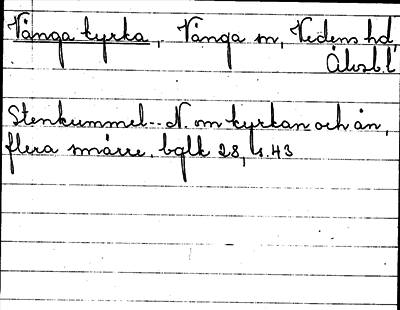 Vånga kyrka, Vånga sn, Vedens hd,
Älvsb.l
Stenkummel.. N. om kyrkan och ån,
flera smärre. bglk 28, s. 43